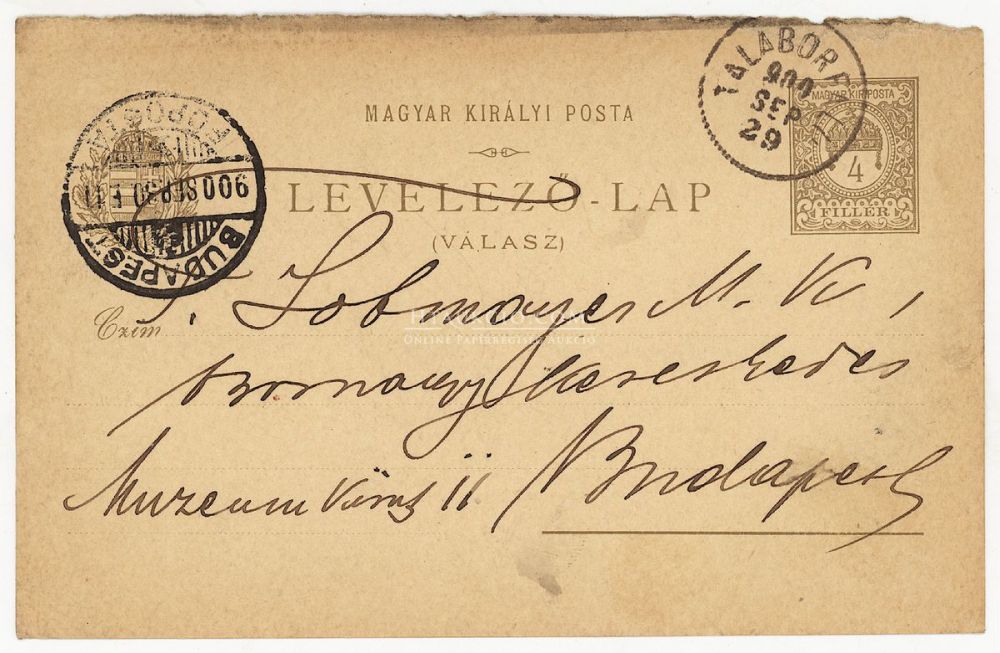 TALABORF
900
SEP
29
MAGYAR KIR. POSTA
4
FILLÉR
MAGYAR KIRÁLYI POSTA
LEVELEZŐ-LAP
(VÁLASZ)
BUDAPEST
900 SEP 30
FŐPOSTA
Czim
T. Lobmayer M. K,
Bornagy Kereskedes
Muzeum Körut 11 Budapest
ONLINE PAPÍRRÉGISÉG AUKCIÓ